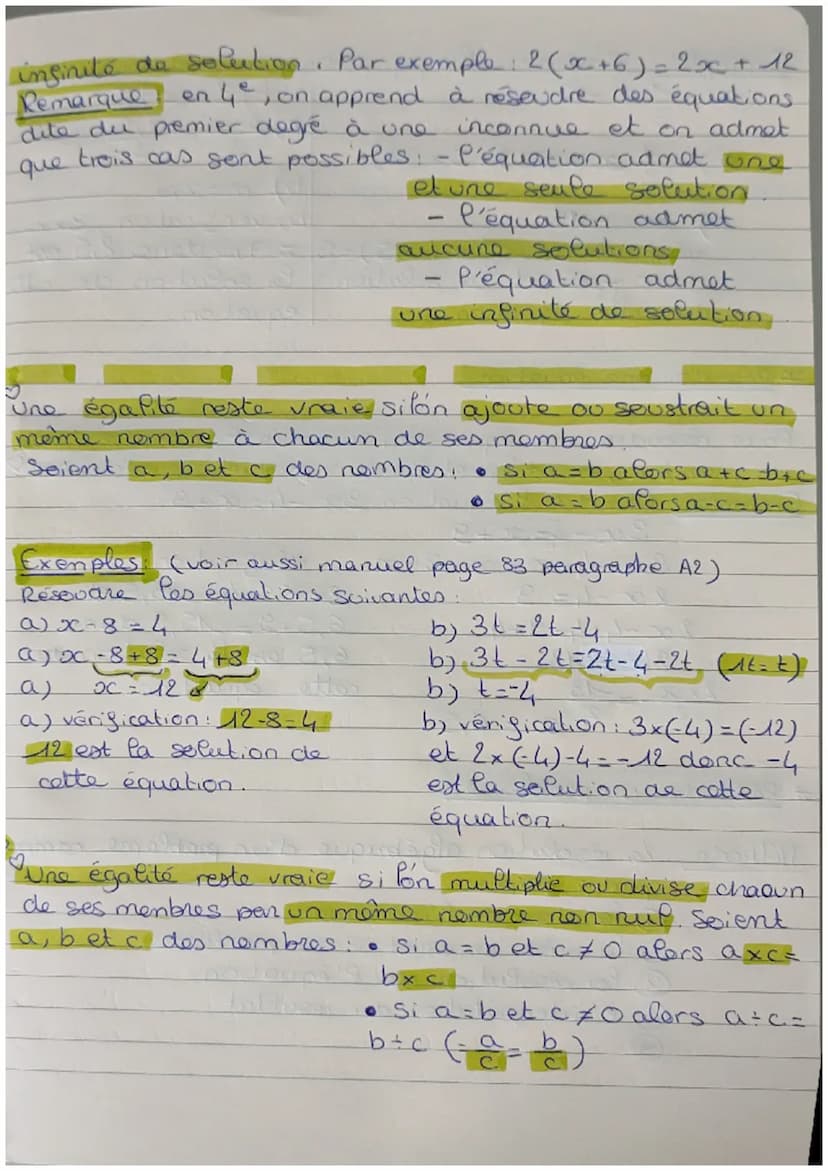 infinité de solution. Par exemple : 2(x+6)=2x+12
Remarque : en 4e, on apprend à résoudre des équations
dite du premier degré à une inconnue et on admet
que trois cas sont possibles : - l'équation admet une
et une seule solution.
- l'équation admet
aucune solutions,
- l'équation admet
une infinité de solution
Une égalité reste vraie si l'on ajoute ou soustrait un
même nombre à chacun de ses membres.
Soient a, b et c des nombres : • si a=b alors a+c=b+c
• si a=b alors a-c=b-c
Exemples : (voir aussi manuel page 83 paragraphe A2)
Résoudre les équations suivantes :
a) x-8=4
a) x-8+8=4+8
a) x=12
a) vérification : 12-8=4
12 est la solution de
cette équation.
b) 3t=2t-4
b) 3t-2t=2t-4-2t (1t=t)
b) t=-4
b) vérification : 3x(-4)=(-12)
et 2x(-4)-4=-12 donc -4
est la solution de cette
équation.
Une égalité reste vraie si l'on multiplie ou divise chacun
de ses menbres par un même nombre non nul. Soient
a, b et c des nombres : • si a=b et c≠0 alors axc=
bxc
• si a=b et c≠0 alors a÷c=
b÷c (=a/c=b/c)